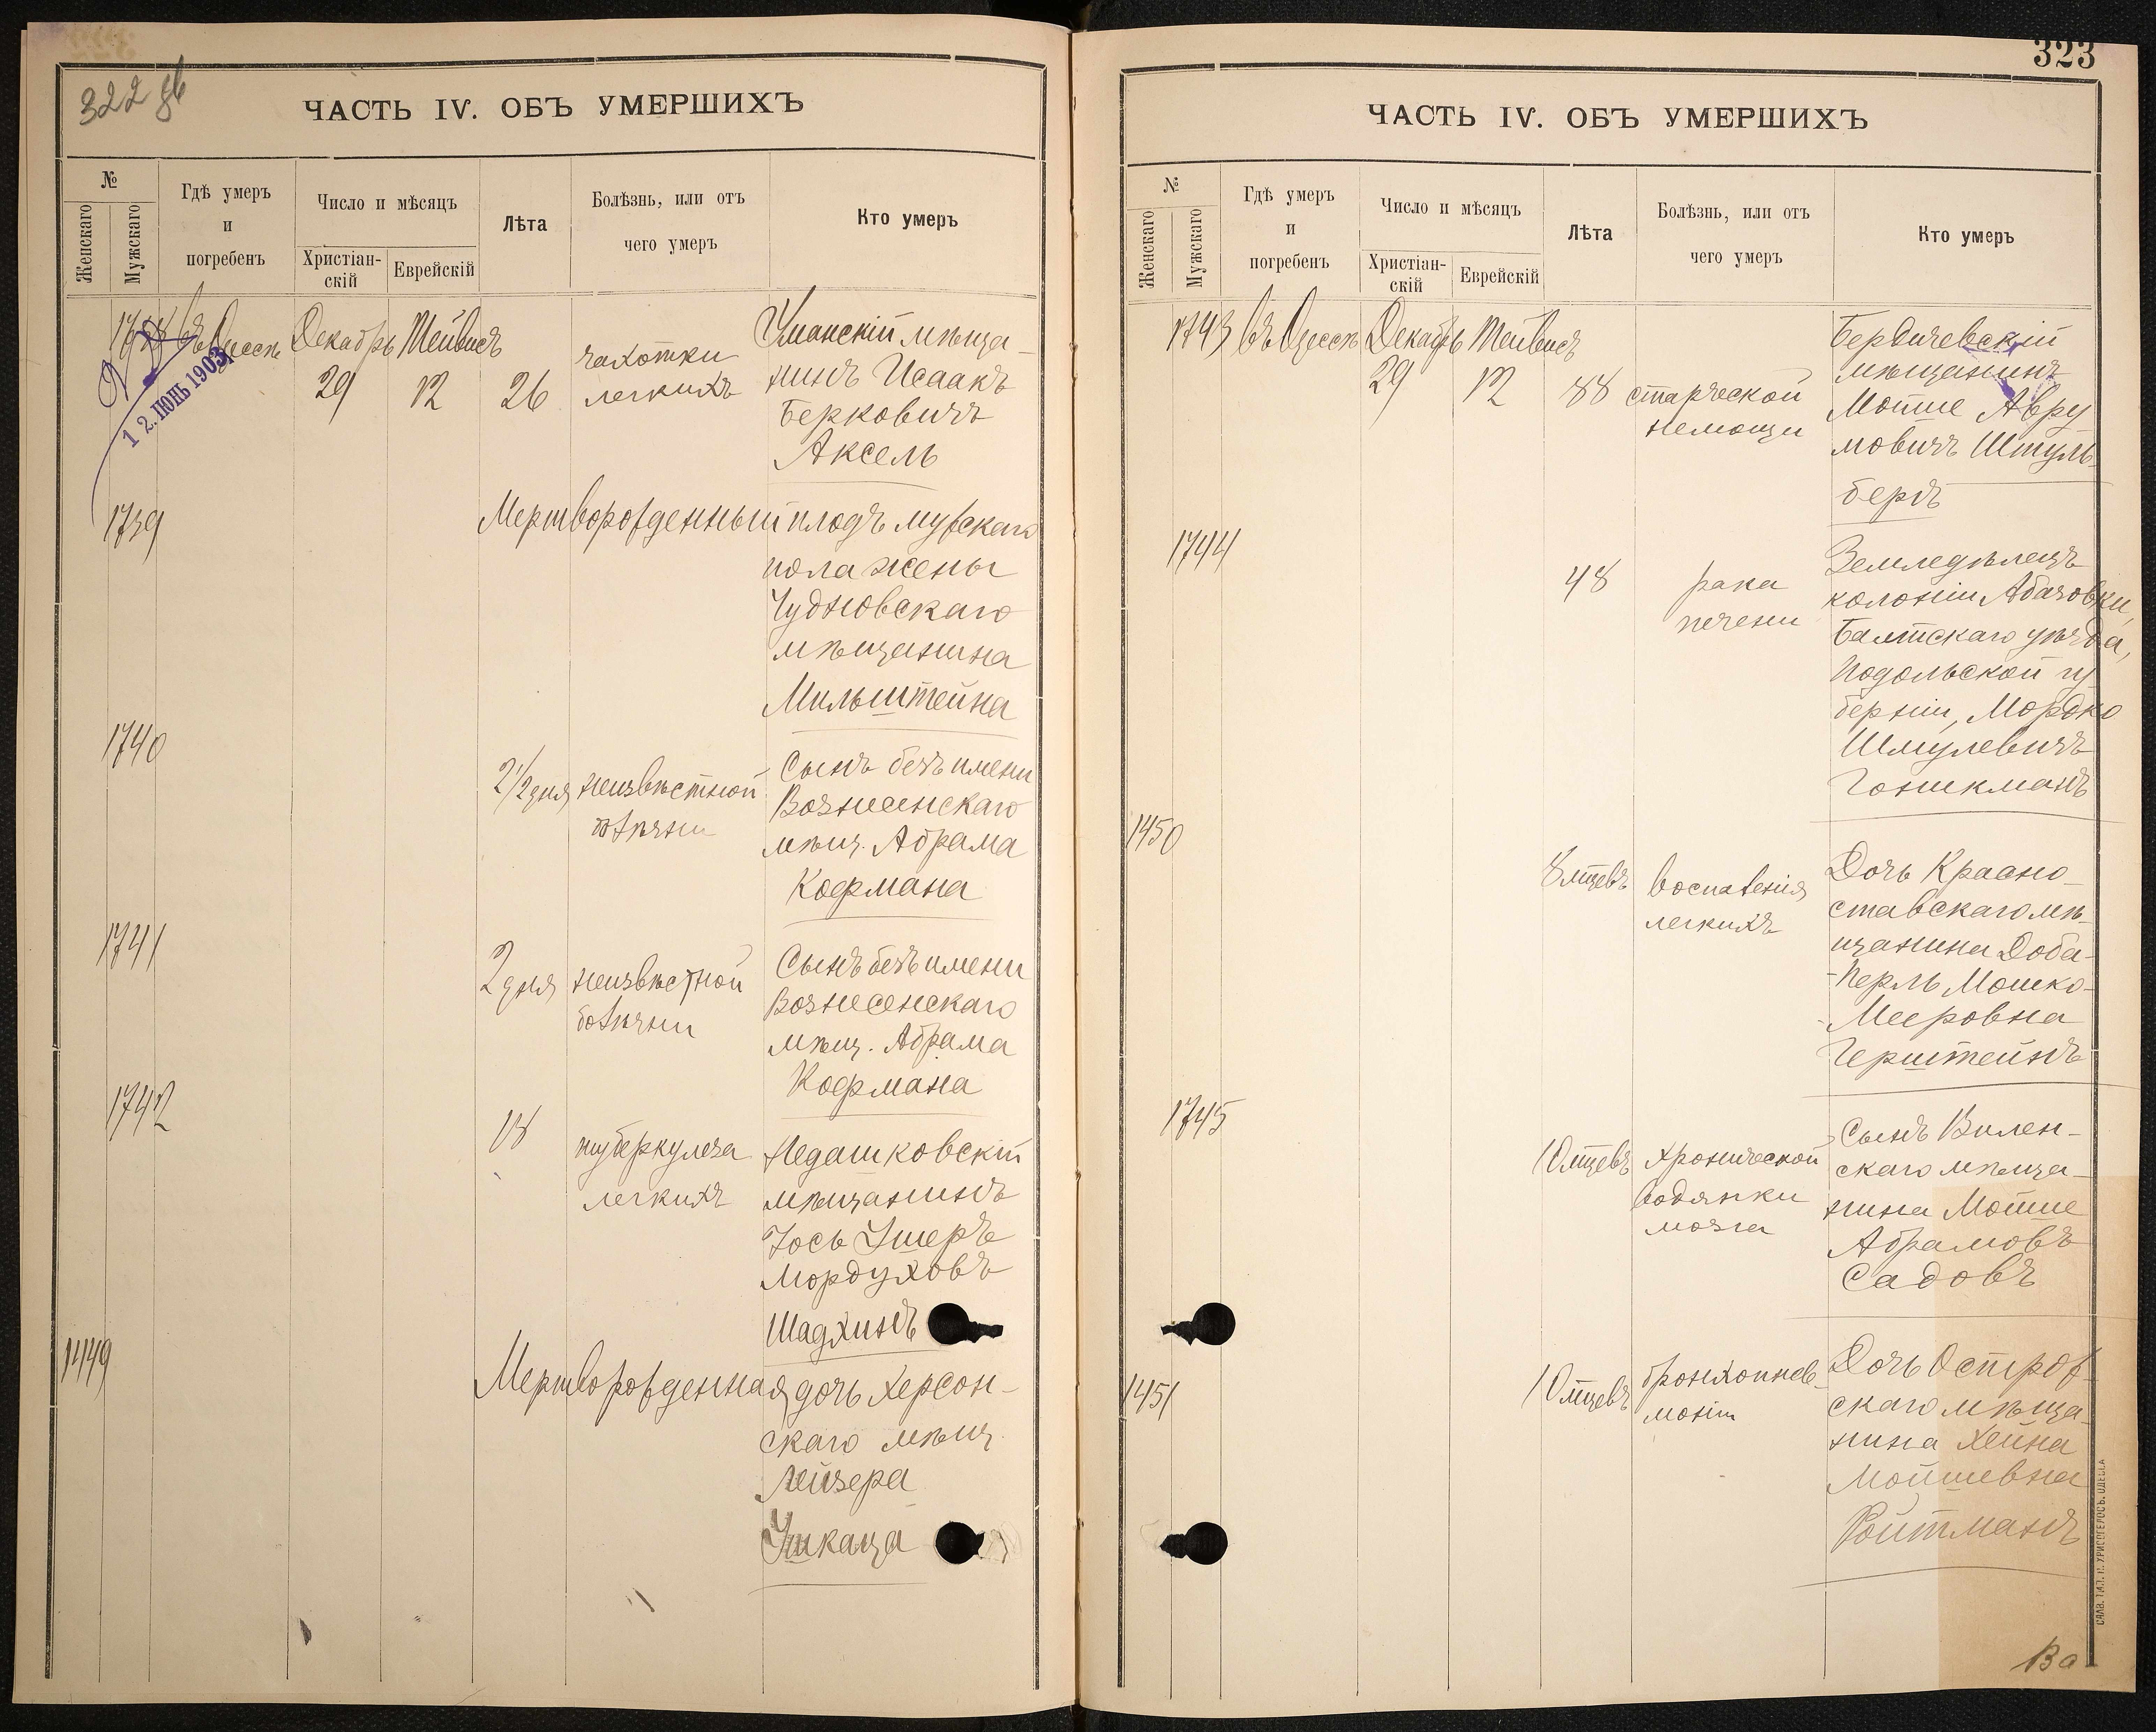 322 об
ЧАСТЬ IV. ОБЪ УМЕРШИХЪ
№
Женскаго
Мужскаго
Гдѣ умеръ
и
погребенъ
Число и мѣсяцъ
Христіан-
скій
Еврейскій
Лѣта
Болѣзнь, или отъ
чего умеръ
Кто умеръ
1738 Въ Одессѣ Декабрь Тейвисъ
29 12 26
чахотки
легкихъ
Уманскій мѣща-
нинъ Исаакъ
Берковичъ
Аксель
12. ІЮНЬ 1903
1739
Мертворожденный плодъ мужскаго
пола жены
Чудновскаго
мѣщанина
Мильштейна
1740
2 1/2 дня неизвѣстной
болѣзни
Сынъ безъ имени
Вознесенскаго
мѣщ. Абрама
Кофмана
1741
2 дня неизвѣстной
болѣзни
Сынъ безъ имени
Вознесенскаго
мѣщ. Абрама
Кофмана
1742
18 туберкулеза
легкихъ
Недашковскій
мѣщанинъ
Іось Ушеръ
Мордуховъ
Шадхинъ
1449
Мертворожденная дочь Херсон-
скаго мѣщ.
Лейзера
Ушкаца
323
ЧАСТЬ IV. ОБЪ УМЕРШИХЪ
№
Женскаго
Мужскаго
Гдѣ умеръ
и
погребенъ
Число и мѣсяцъ
Христіан-
скій
Еврейскій
Лѣта
Болѣзнь, или отъ
чего умеръ
Кто умеръ
1743 Въ Одессѣ Декабрь Тейвисъ
29 12 88 старческой
немощи
Бердичевскій
мѣщанинъ
Мойше Авру
мовичъ Штуль-
бергъ
1744
48 рака
печени
Земледѣлецъ
колоніи Абазовки,
Балтскаго уѣзда,
Подольской гу
берніи, Мордко
Шмулевичъ
Гоникманъ
1450
8 мцевъ воспаленія
легкихъ
Дочь Красно-
ставскаго мѣ-
щанина Доба-
-Перль Мошко-
-Мееровна
Герштейнъ
1745
10 мцевъ хронической
водянки
мозга
Сынъ Вилен-
скаго мѣща-
нина Мойше
Абрамовъ
Садовъ
1451
10 мцевъ бронхопнев-
моніи
Дочь Острож-
скаго мѣща-
нина Хейна
Мойшевна
Ройтманъ
САЛВ. ТИП. И. ХРИСОГЕЛОСЪ. ОДЕССА
Ва